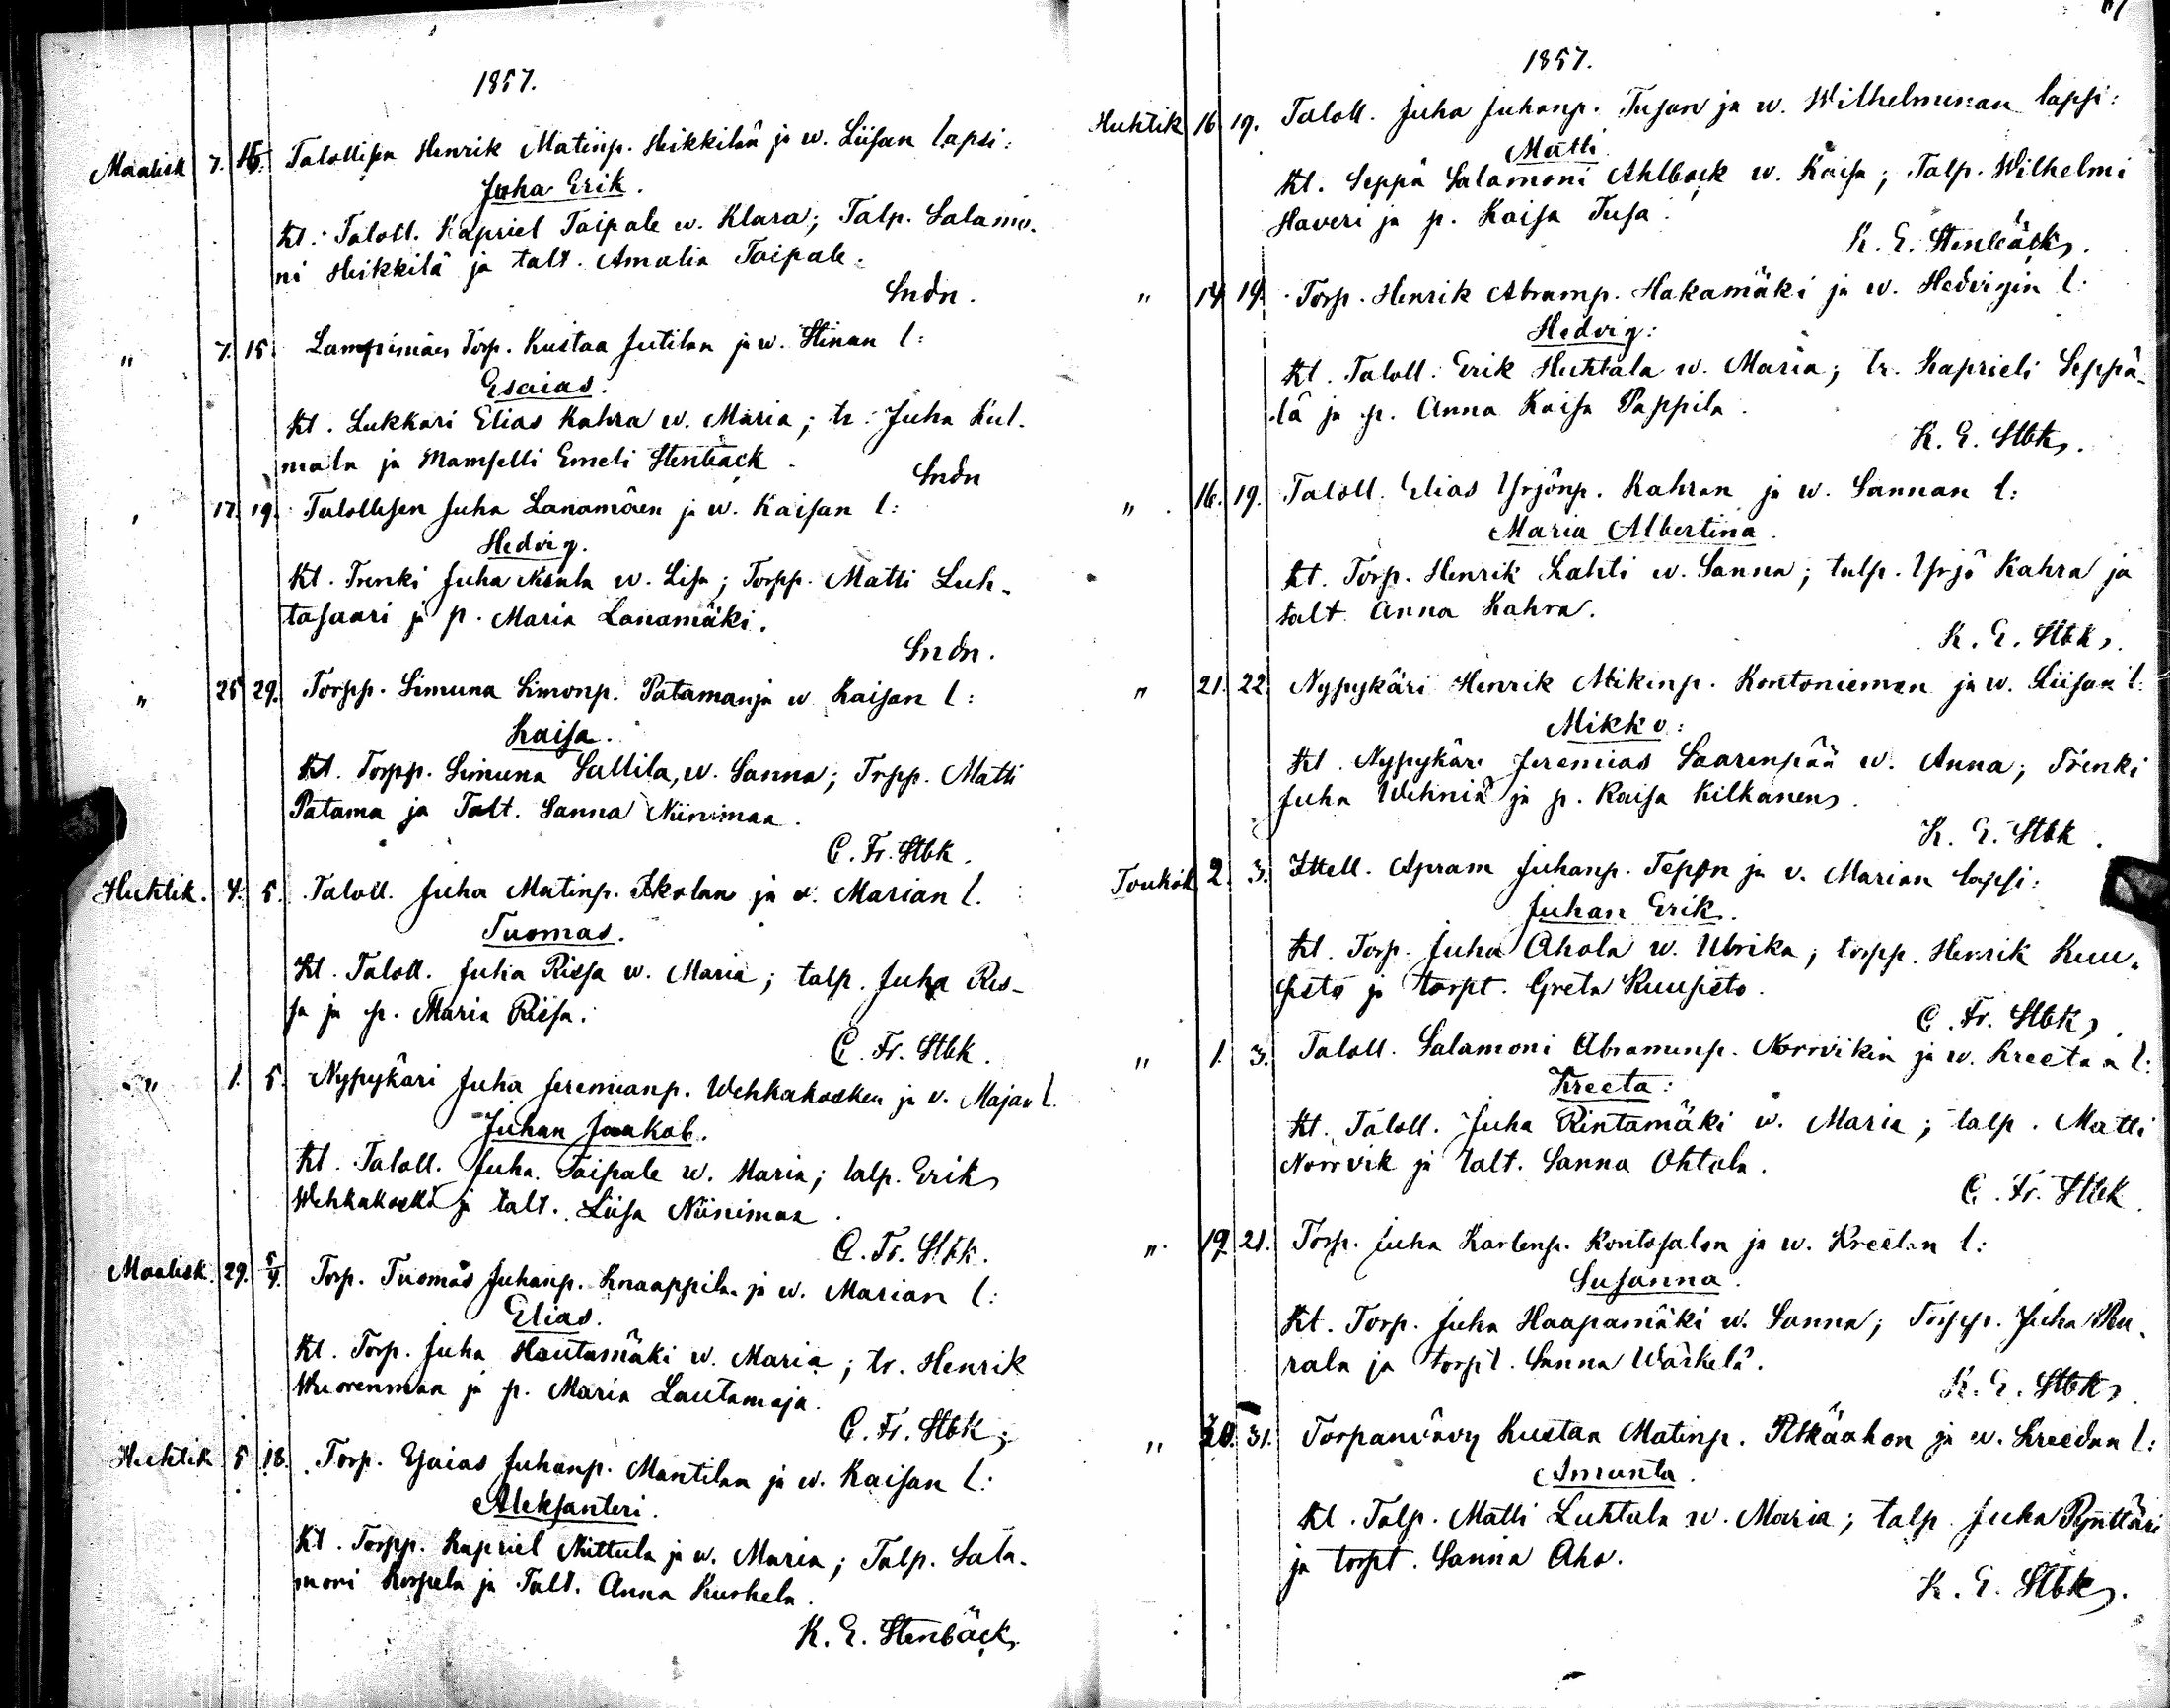 1857.
Maalisk 7. 15. Talollisen Henrik Matinp. Heikkilän ja w. Liisan lapsi:
Juha Erik.
Kt. Taloll. Kapriel Taipale w. Klara; Talp. Salamo-
ni Heikkilä ja talt. Amalia Taipale.
Sndn.
" 7. 15. Lampimäen Torp. Kustaa Jutilan ja w. Stinan l:
Esaias.
Kt. Lukkari Elias Kahra w. Maria; tr. Juha Kul-
mala ja Mamselli Emeli Stenbäck.
Sndn
17. 19. Talollisen Juha Lanamäen ja w. Kaisan l:
Hedvig.
Kt. Trenki Juha w. Lisa; Torpp. Matti Luh-
tasaari ja p. Maria Lanamäki.
Sndn.
" 25 29. Torpp. Simuna Simonp. Pataman ja w Kaisan l:
Kaisa.
Kt. Torpp. Simuna Sallila, w. Sanna; Trpp. Matti
Patama ja Talt. Sanna Niinimaa.
C. Fr. Stbk.
Huhtik. 4. 5. Taloll. Juha Matinp. ja w. Marian l.
Tuomas.
Kt. Taloll. Juha Rissa w. Maria; talp. Juha Ris-
sa ja p. Maria Rissa.
C. Fr. Stbk.
" 1. 5. Nypykäri Juha Jeremianp. Wehkakosken ja v. Majan l.
Juhan Jaakob.
Kt. Taloll. Juha Taipale w. Maria; talp. Erik
Wehkakoski ja talt. Liisa Niinimaa.
C. Fr. Stbk.
Maalisk. 29. 5/4. Torp. Tuomas Juhanp. Knaappilan ja w. Marian l:
Elias.
Kt. Torp. Juha Hautamäki w. Maria; tr. Henrik
Wuorenmaa ja p. Maria Lautamaja.
C. Fr. Stbk.
Huhtik 5 18. Torp. Esaias Juhanp. Mantilan ja w. Kaisan l:
Aleksanteri.
Kt. Torpp. Kapriel Niittula ja w. Maria; Talp. Sala-
moni Korpela ja Talt. Anna Kuskela.
K. E. Stenbäck.
1857.
Huhtik 16 19. Taloll. Juha Juhanp. Tusan ja w. Wilhelminan lapsi:
Matti.
Kt. Seppä Salamoni Ahlbäck w. Kaisa; Talp. Wilhelmi
Haveri ja p. Kaisa Tusa.
K. E. Stenbäck.
" 14 19. Torp. Henrik Abramp. Hakamäki ja w. Hedvigin l:
Hedvig:
Kt. Taloll. Erik Huhtala w. Maria; tr. Kaprieli Seppä-
lä ja p. Anna Kaisa Pappila.
K. E. Stbk.
" 16. 19. Taloll. Elias Yrjönp. Kahran ja w. Sannan l:
Maria Albertina.
Kt. Torp. Henrik Lahti w. Sanna; talp. Yrjö Kahra ja
talt. Anna Kahra.
K. E. Stbk.
" 21. 22. Nypykäri Henrik Mikinp. Kontoniemen ja w. Liisan l:
Mikko:
Kt. Nypykäri Jeremias Saarenpää w. Anna; Trenki
Juha Wehniä ja p. Kaisa Kilkanen.
K. E. Stbk.
Toukok 2. 3. Ittell. Apram Juhanp. Tepon ja v. Marian lapsi:
Juhan Erik.
Kt. Torp. Juha Ahola w. Ulrika; torpp. Henrik Kuu-
sisto ja torpt. Greta Kuusisto.
C. Fr. Stbk.
" 1. 3. Taloll. Salamoni Abraminp. Norrvikin ja w. Kreetan l:
Kreeta:
Kt. Taloll. Juha Rintamäki w. Maria; talp. Matti
Norrvik ja talt. Sanna Ohtola.
C. Fr. Stbk.
" 19. 21. Torp. Juha Karlenp. Kontosalon ja w. Kreetan l:
Susanna.
Kt. Torp. Juha Haapamäki w. Sanna; Torpp. Juha
rala ja torpt. Sanna Wärkelä.
K. E. Stbk.
" 30. 31. Torpanvävy Kustaa Matinp. Pitkäahon ja w. Kreedan l:
Amanta.
Kt. Talp. Matti Luhtala w. Maria; talp. Juha Pynttäri
ja torpt. Sanna Aho.
K. E. Stbk.